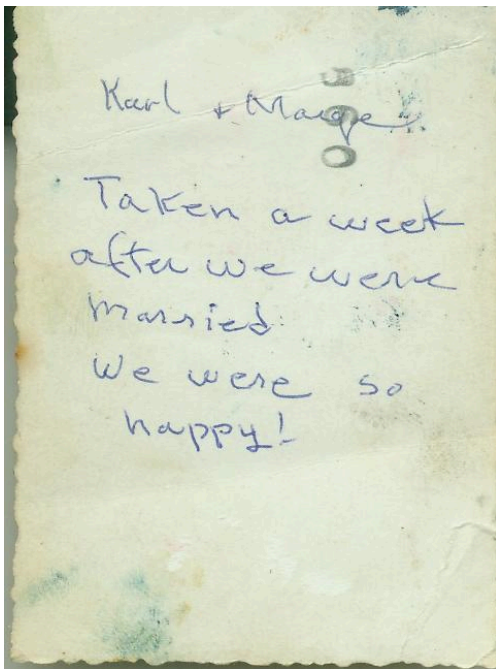 Karl + Marge
960
Taken a week
after we were
married
We were so
happy!